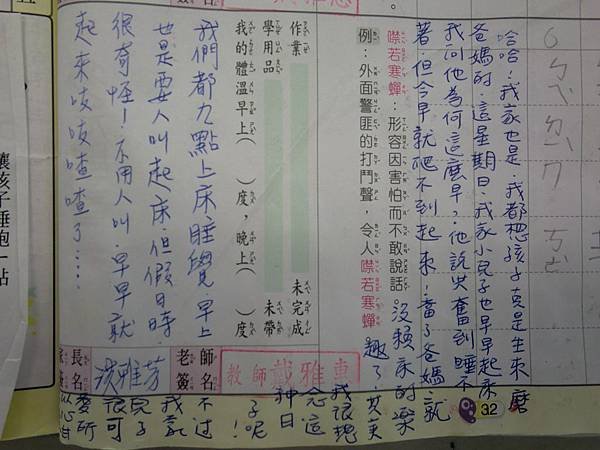 哈哈!我家也是.我都想孩子真是生來磨
爸媽的.這星期日.我家小兒子也早早起床
我問他為何這麼早?他說興奮到睡不
著.但今早就爬不到起來!當了爸媽就
沒賴床的樂
趣了.其實
我很想
念這
種日
子呢!
不过
我家
兒子
很可
愛所
以心甘
32
噤若寒蟬：形容因害怕而不敢說話。
例：外面警匪的打鬥聲，令人噤若寒蟬
作業 未完成
學用品 未帶
我的體溫早上( )度，晚上( )度
教師 戴雅惠
我們都九點上床睡覺 早上
也是要人叫起床.但假日時.
很奇怪!不用人叫.早早就
起來吱吱喳喳了....
師名
老簽
雅芳
長名
讓孩子睡飽一點